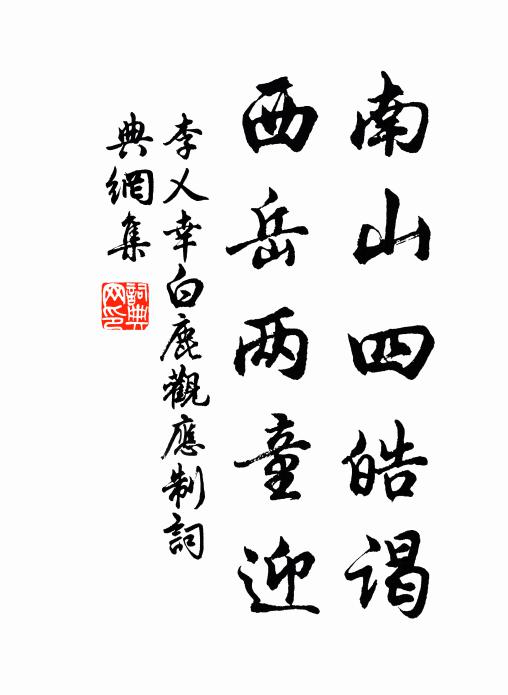 南山四皓謁
西岳两童迎
李乂幸白鹿觀應制詞
典網集
詞典
网印